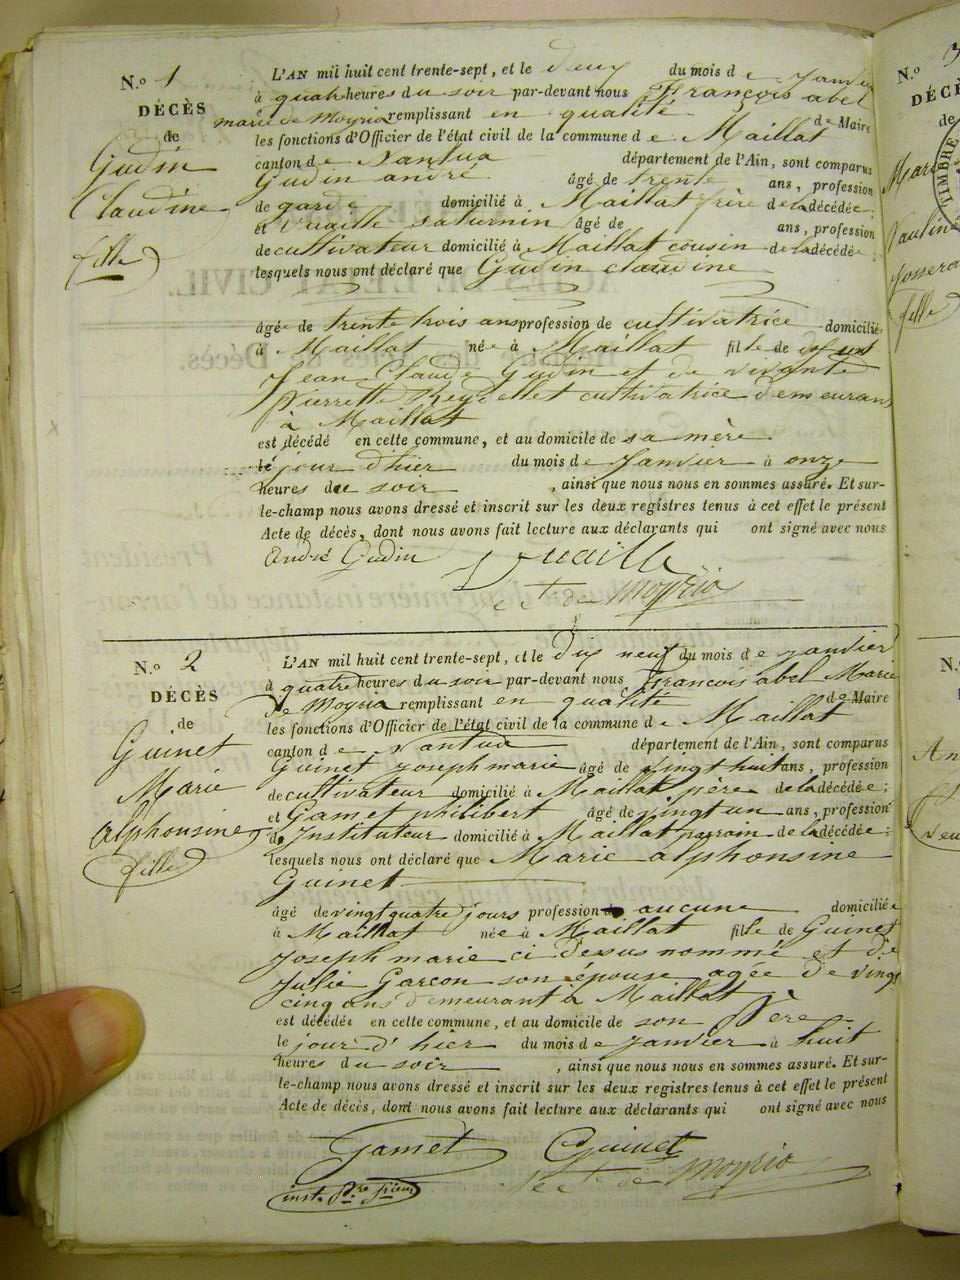 N.º 1
DÉCÈS
de
Gudin
Claudine
fille
L'AN mil huit cent trente-sept, et le deux du mois de Janvier
à quatre heures du soir par-devant nous François abel
marie de Moyria remplissant en qualité de Maire
les fonctions d'Officier de l'état civil de la commune de Maillat
canton de Nantua département de l'Ain, sont comparus
Gudin andré âgé de trente ans, profession
de garde domicilié à Maillat frère de la décédée;
et Vuaille saturnin âgé de ans, profession
de cultivateur domicilié à Maillat cousin de la décédée
lesquels nous ont déclaré que Gudin claudine
âgée de trente trois ans profession de cultivatrice domiciliée
à Maillat née à Maillat fille de
Jean Claude Gudin et de vivante
Pierrette Reydellet cultivatrice demeurant
à Maillat
est décédé en cette commune, et au domicile de sa mère
le jour d'hier du mois de Janvier à onze
heures du soir, ainsi que nous nous en sommes assuré. Et sur-
le-champ nous avons dressé et inscrit sur les deux registres tenus à cet effet le présent
Acte de décès, dont nous avons fait lecture aux déclarants qui ont signé avec nous
André Gudin Vuaille
de Moyria
N.º 2
DÉCÈS
de
Guinet
Marie
alphonsine
fille
L'AN mil huit cent trente-sept, et le dix neuf du mois de janvier
à quatre heures du soir par-devant nous François abel Marie
de Moyria remplissant en qualité de Maire
les fonctions d'Officier de l'état civil de la commune de Maillat
canton de Nantua département de l'Ain, sont comparus
Guinet joseph marie âgé de vingt huit ans, profession
de cultivateur domicilié à Maillat père de la décédée;
et Gamet philibert âgé de vingt un ans, profession
d'Instituteur domicilié à Maillat parrain de la décédée;
lesquels nous ont déclaré que Marie alphonsine
Guinet
âgé de vingt quatre jours profession aucune domiciliée
à Maillat née à Maillat fille de Guinet
joseph marie ci dessus nommé et de
Julie Garcon son épouse agée de vingt
cinq ans demeurant à Maillat
est décédée en cette commune, et au domicile de son père
le jour d'hier du mois de janvier à huit
heures du soir, ainsi que nous nous en sommes assuré. Et sur-
le-champ nous avons dressé et inscrit sur les deux registres tenus à cet effet le présent
Acte de décès, dont nous avons fait lecture aux déclarants qui ont signé avec nous
Gamet Guinet
de Moyria